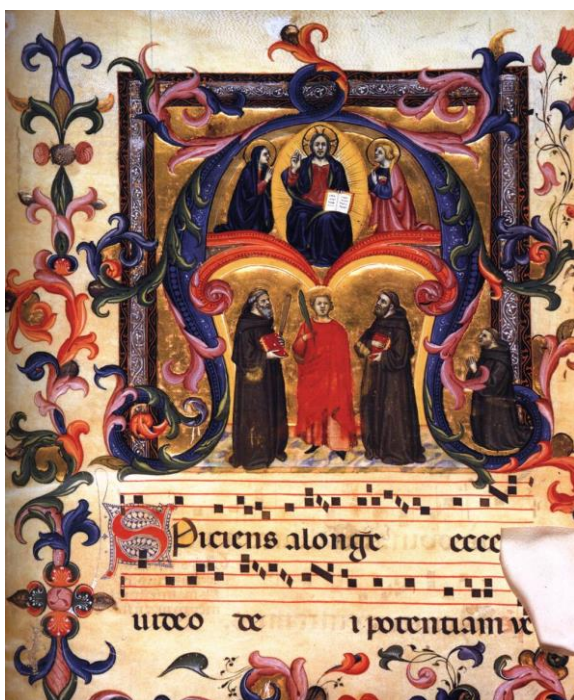 Spiciens alonge ecce
uideo de i potentiam ve